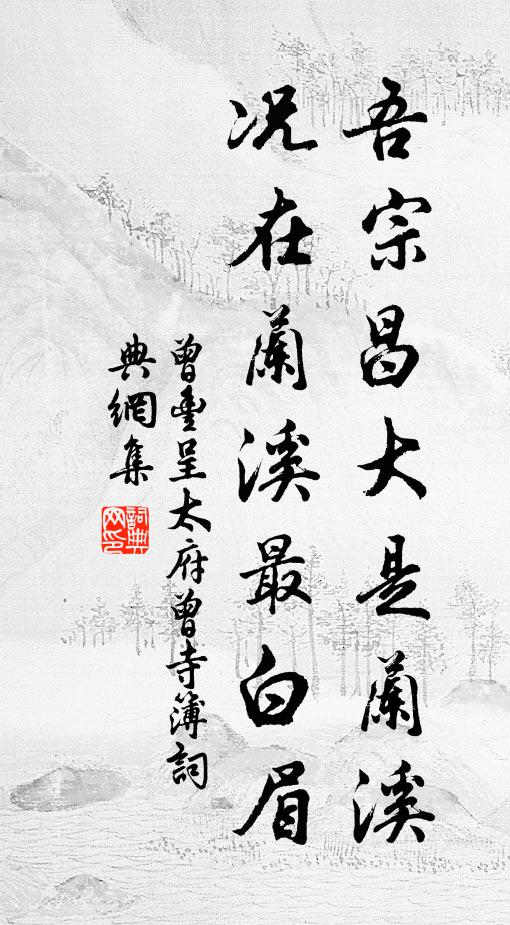 吾宗昌大是蘭溪
况在蘭溪最白眉
曾豐呈太府曾寺簿詞
典網集
詞典网印